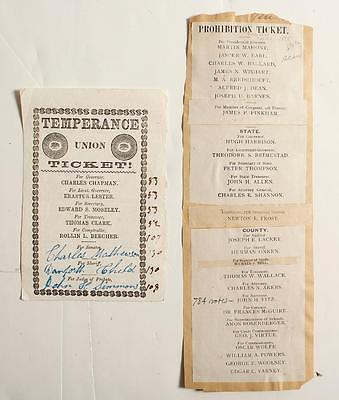 TEMPERANCE
UNION
TICKET!
For Governor,
CHARLES CHAPMAN.
For Lieut. Governor,
ERASTUS LESTER.
For Secretary,
EDWARD S. MOSELEY.
For Treasurer,
THOMAS CLARK.
For Comptroller,
ROLLIN L. BEECHER.
For Senator,
Charles Mathewson
For Sheriff,
Danforth Child
For Judge of Probate,
John
PROHIBITION TICKET.
For Presidential Electors,
MARTIN MAHONY,
CHARLES W. BALLARD,
JAMES N. WINHART,
ALFRED J. DEAN,
JOSEPH U. BARNES.
For Member of Congress,
JAMES P. PINKHAM.
STATE.
For Governor,
HUGH HARRISON.
For Lieutenant-Governor,
THEODORE S. REIMESTAD.
For Secretary of State,
PETER THOMPSON.
For State Treasurer,
JOHN H. ALLEN.
For Attorney General,
CHARLES E. SHANNON.
NEWTON K. FROST.
COUNTY.
For Auditor,
JOSEPH E. LACKEY.
For Sheriff,
HERMAN OXNEN.
For Treasurer,
THOMAS W. WALLACE.
For Attorney,
CHARLES N. AKERS.
784 votes
For Surveyor,
JOHN H. FITZ.
For Coroner,
DR. FRANCIS McGUIRE.
For Superintendent of Schools,
AMOS ROSENBERGER.
For Court Commissioner,
GEO. J. VIRTUE.
For Commissioners,
OSCAR WOLFE,
WILLIAM A. POWERS,
GEORGE E. WOOLSEY,
EDGAR E. VARNEY.